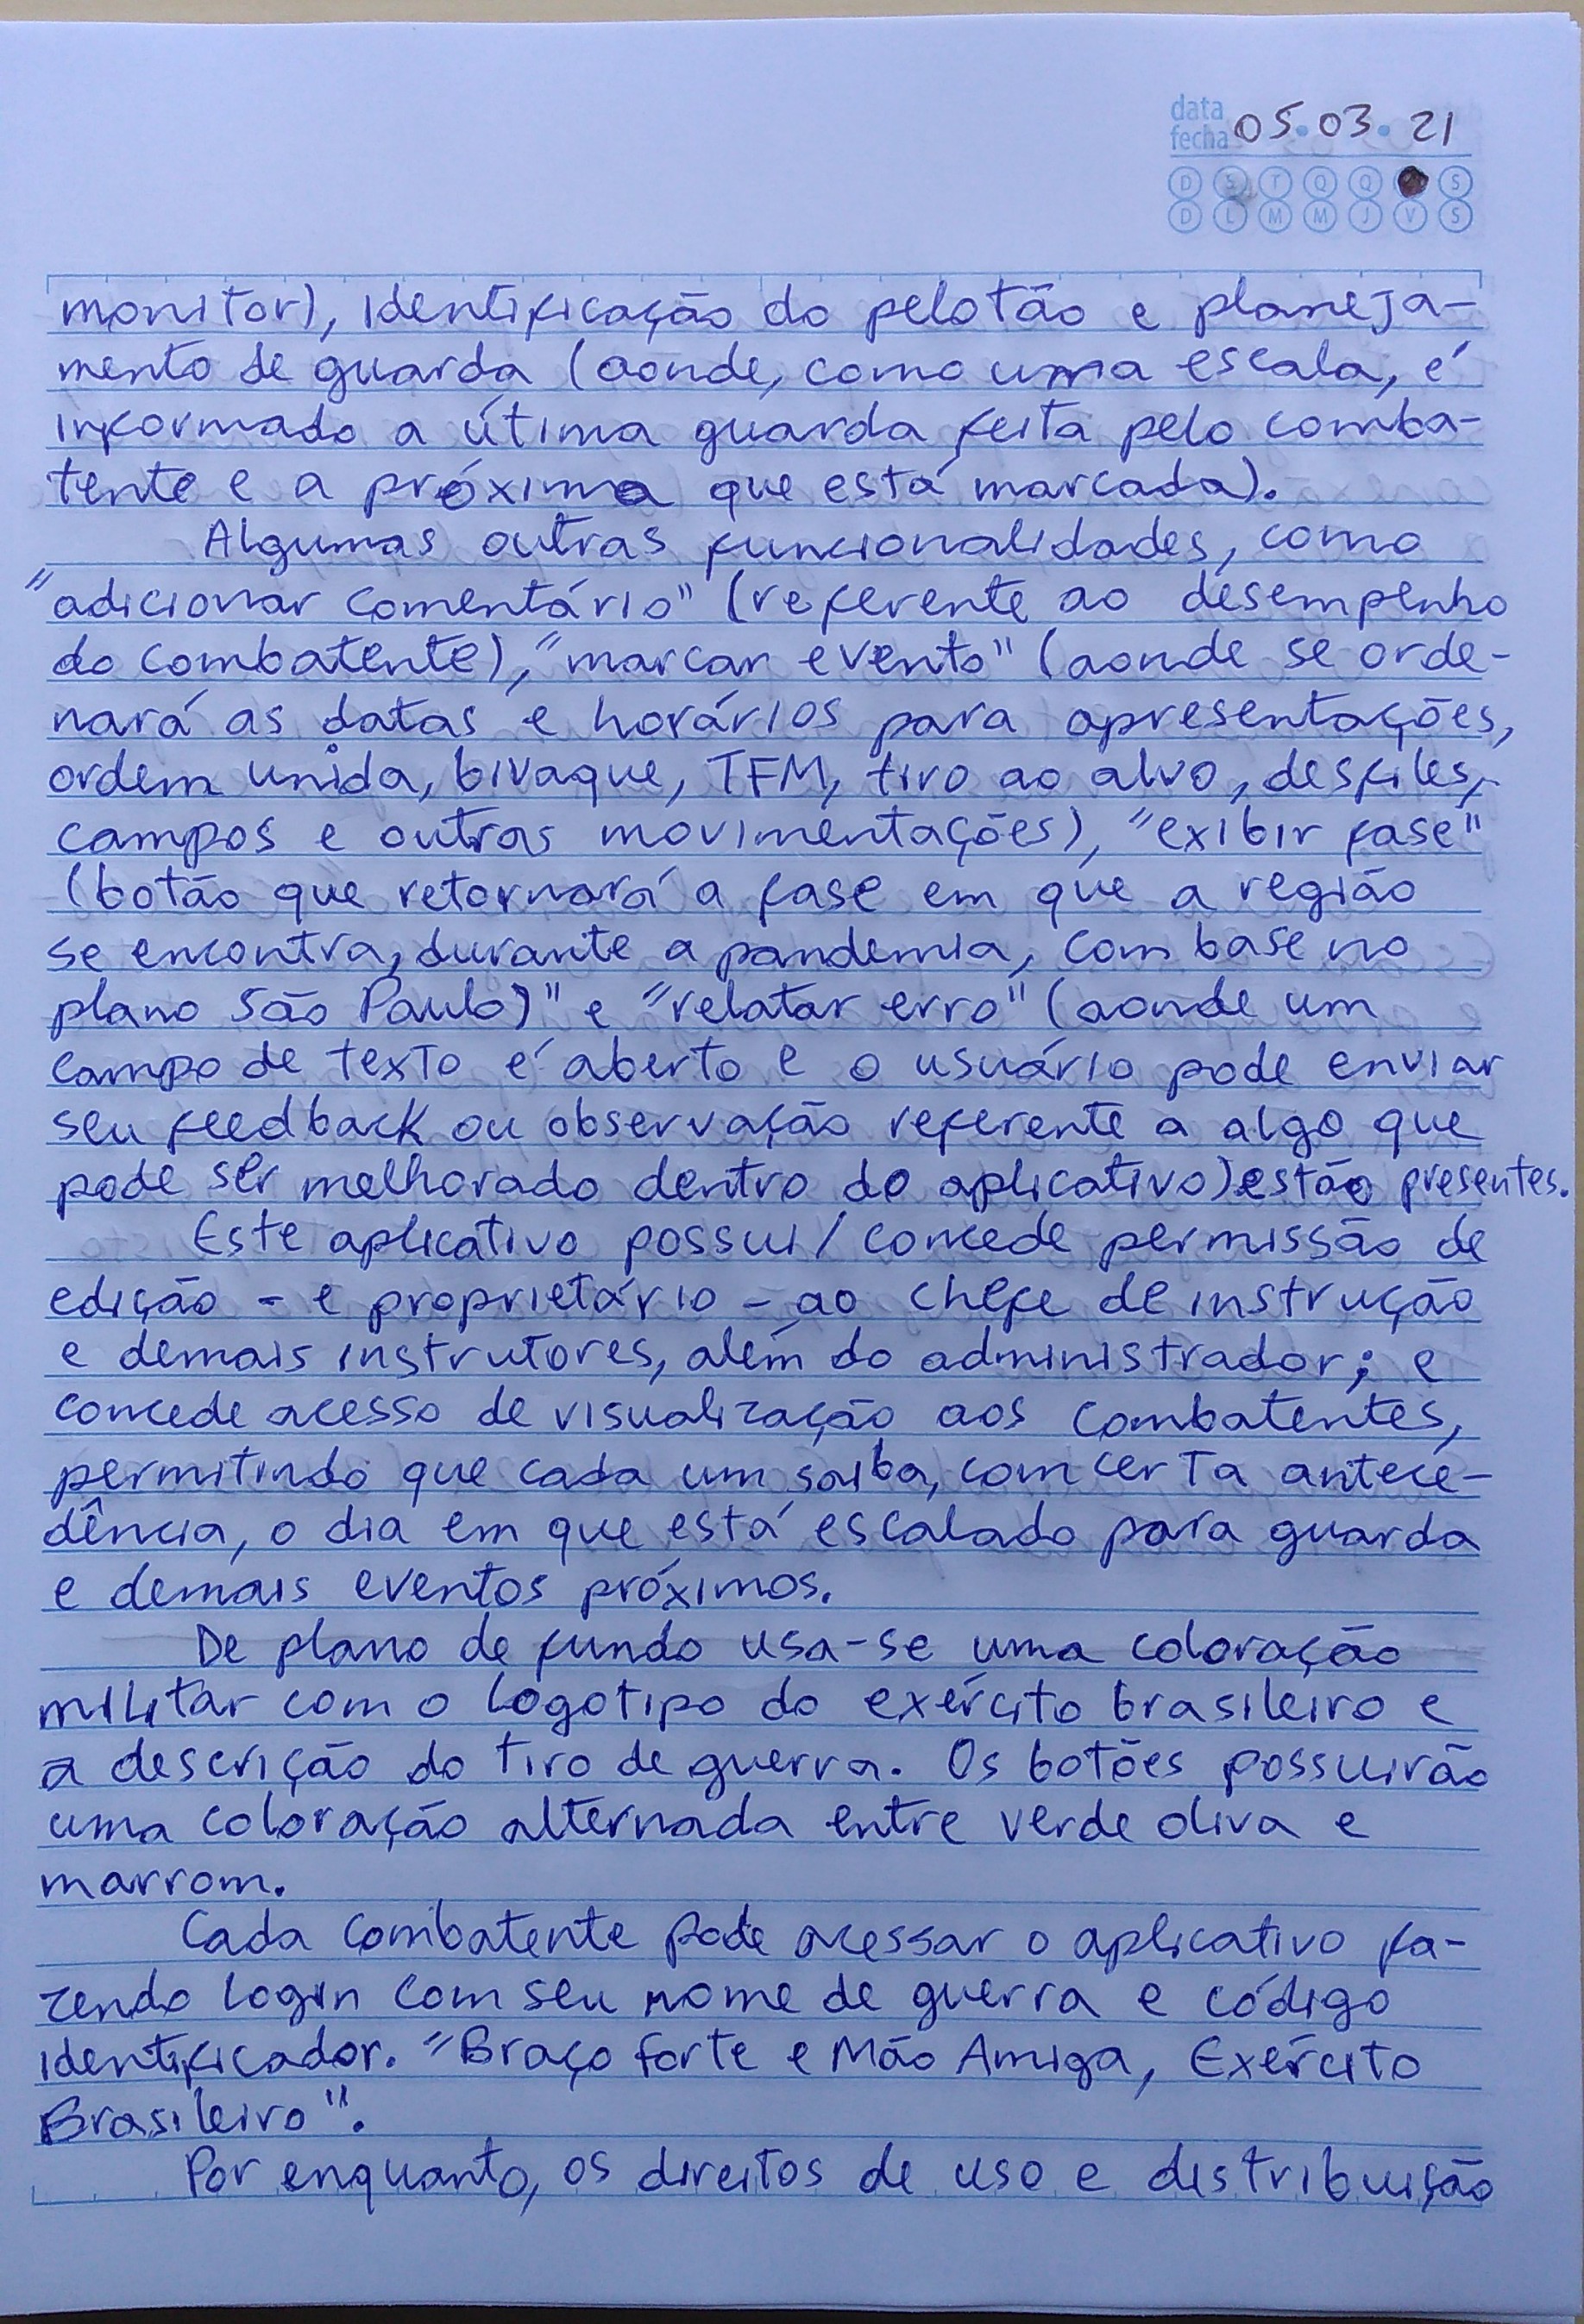 data
fecha 05.03.21
D S T Q Q S
D L M M J V S
monitor), identificação do pelotão e planeja-
mento de guarda (aonde, como uma escala, é
informado a útima guarda feita pelo comba-
tente e a próxima que está marcada).
Algumas outras funcionalidades, como
"adicionar comentário" (referente ao desempenho
do combatente), "marcar evento" (aonde se orde-
nará as datas e horários para apresentações,
ordem unida, bivaque, TFM, tiro ao alvo, desfiles,
campos e outras movimentações), "exibir fase"
(botão que retornará a fase em que a região
se encontra, durante a pandemia, com base no
plano São Paulo)" e "relatar erro" (aonde um
campo de texto é aberto e o usuário pode enviar
seu feedback ou observação referente a algo que
pode ser melhorado dentro do aplicativo) estão presentes.
Este aplicativo possui/concede permissão de
edição - e proprietário - ao chefe de instrução
e demais instrutores, além do administrador; e
concede acesso de visualização aos combatentes,
permitindo que cada um saiba, com certa antece-
dência, o dia em que está escalado para guarda
e demais eventos próximos.
De plano de fundo usa-se uma coloração
militar com o logotipo do exército brasileiro e
a descrição do tiro de guerra. Os botões possuirão
uma coloração alternada entre verde oliva e
marrom.
Cada combatente pode acessar o aplicativo fa-
zendo login com seu nome de guerra e código
identificador. "Braço forte e Mão Amiga, Exército
Brasileiro".
Por enquanto, os direitos de uso e distribuição